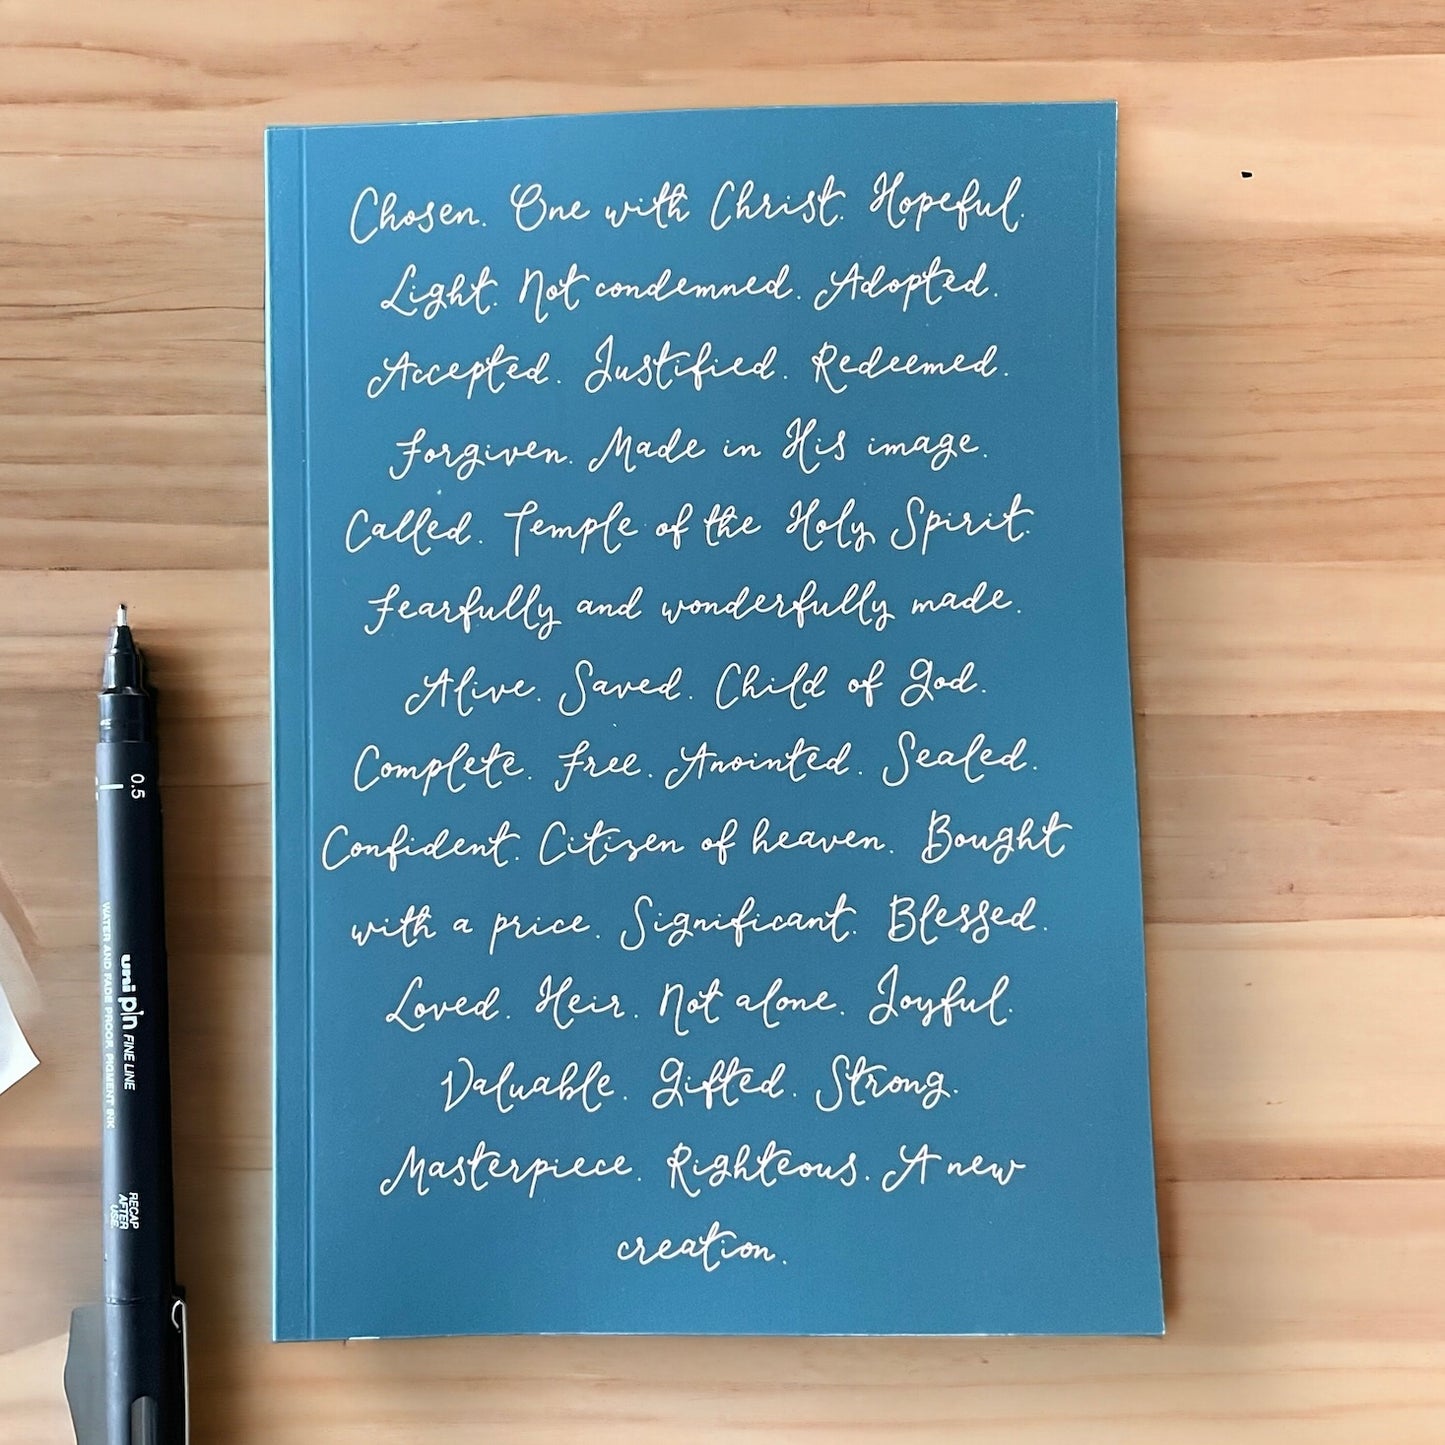 Chosen. One with Christ. Hopeful.
Light. Not condemned. Adopted.
Accepted. Justified. Redeemed.
Forgiven. Made in His image.
Called. Temple of the Holy Spirit.
Fearfully and wonderfully made.
Alive. Saved. Child of God.
Complete. Free. Anointed. Sealed.
Confident. Citizen of heaven. Bought
with a price. Significant. Blessed.
Loved. Heir. Not alone. Joyful.
Valuable. Gifted. Strong.
Masterpiece. Righteous. A new
creation.
0.5
uni pin FINE LINE
WATER AND FADE PROOF, PIGMENT INK
RECAP
AFTER
USE.